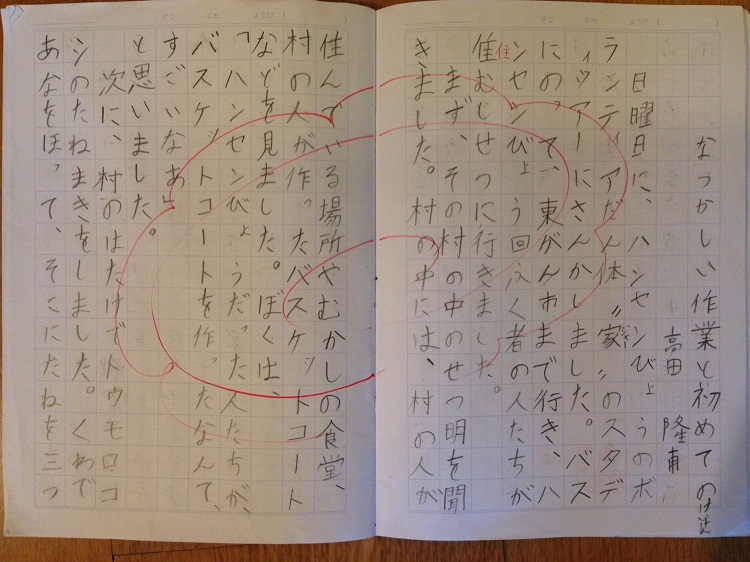 なつかしい作業と初めてのけいけん
高田 隆甫
日曜日に、ハンセンびょうのボ
ランティアだん体〝家〟のスタデ
ィツアーにさんかしました。バス
にのって、東がん まで行き、ハ
ンセンびょう回ふく者の人たちが
住
住むしせつに行きました。
まず、その村の中のせつ明を聞
きました。村の中には、村の人が
住んでいる場所やむかしの食堂、
村の人が作ったバスケットコート
などを見ました。ぼくは、
「ハンセンびょうだった人たちが、
バスケットコートを作ったなんて、
すごいなあ」
と思いました。
次に、村のはたけでトウモロコ
シのたねまきをしました。くわで
あなをほって、そこにたねを三つ